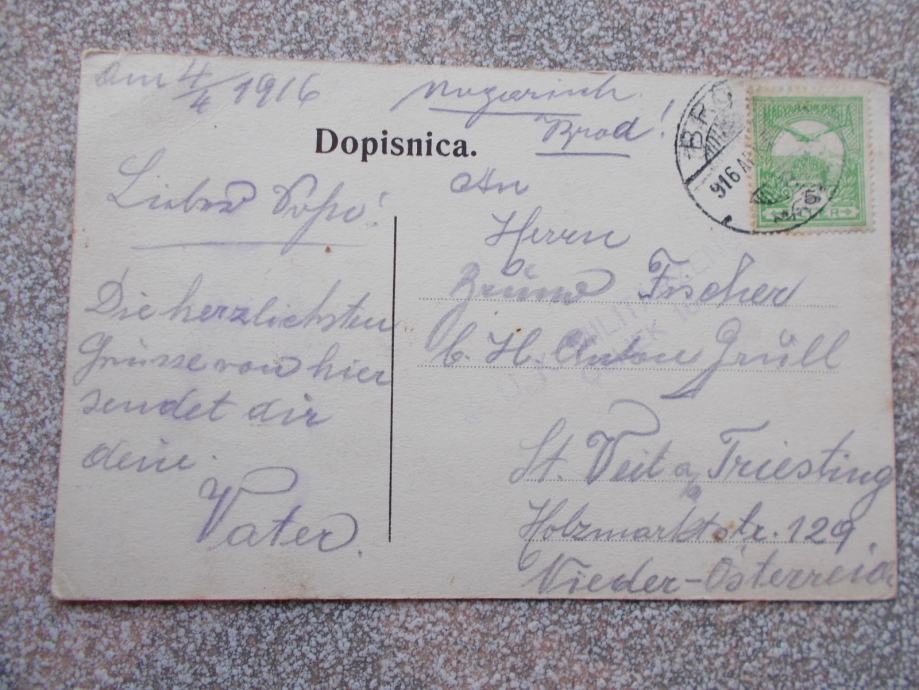 Am 4/4 1916
Ungarisch
Brod!
Dopisnica.
Lieber
Die herzlichsten
Grüsse von hier
sendet dir
deine
Vater.
An
Herrn
Bruno Fischer
b. H. Anton Grüll
St. Veit a Triesting
Holzmarktstr. 129
Nieder-Österreich
BRO
916